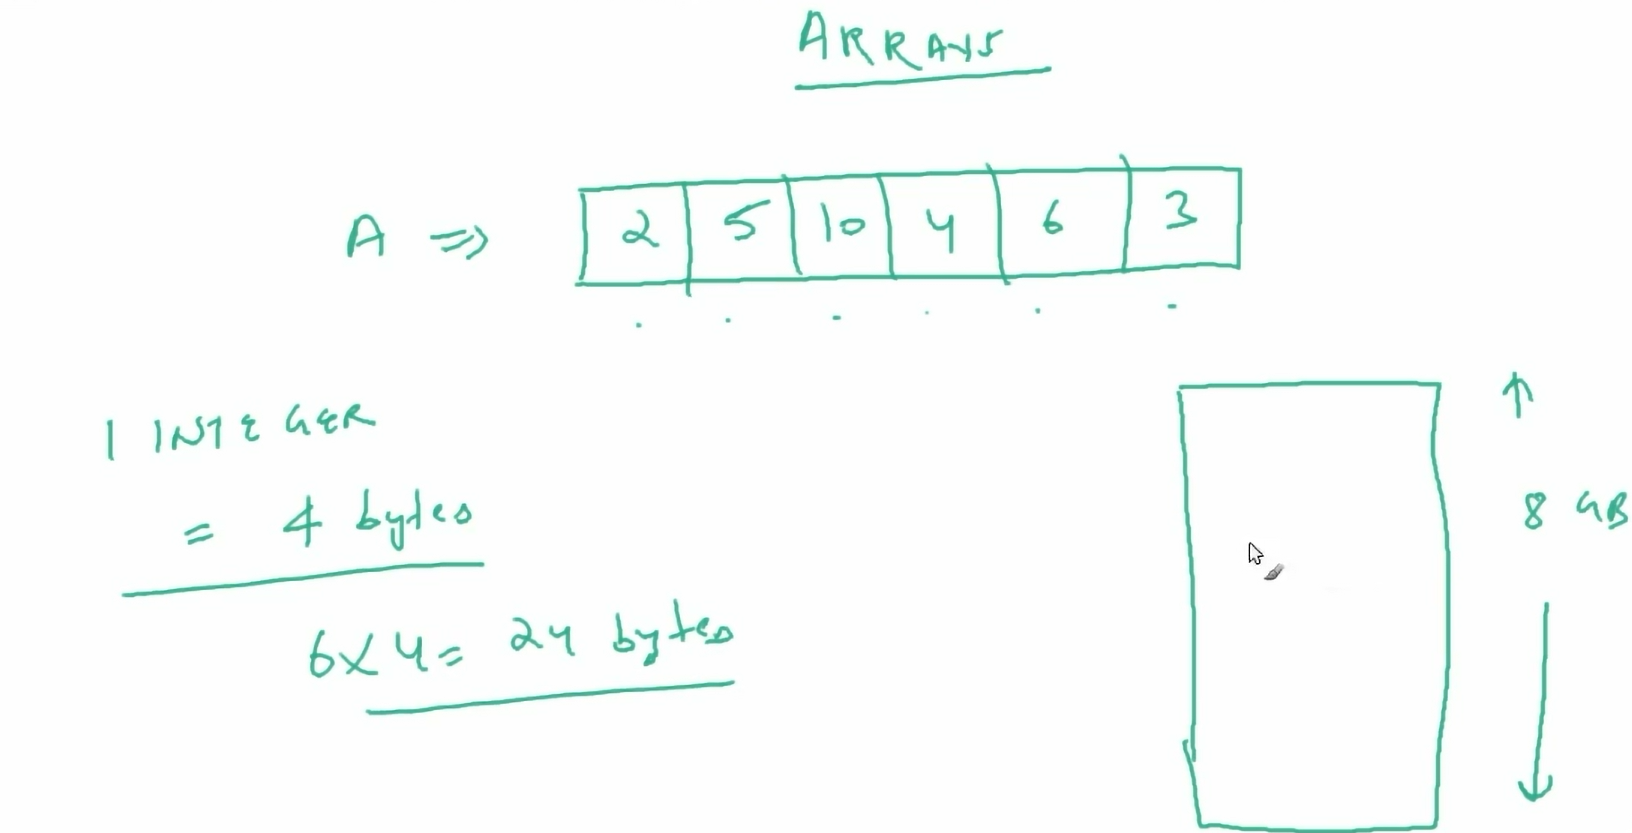 ARRAYS
A ⇒ 2 5 10 4 6 3
1 INTEGER
= 4 bytes
6x4= 24 bytes
8 GB